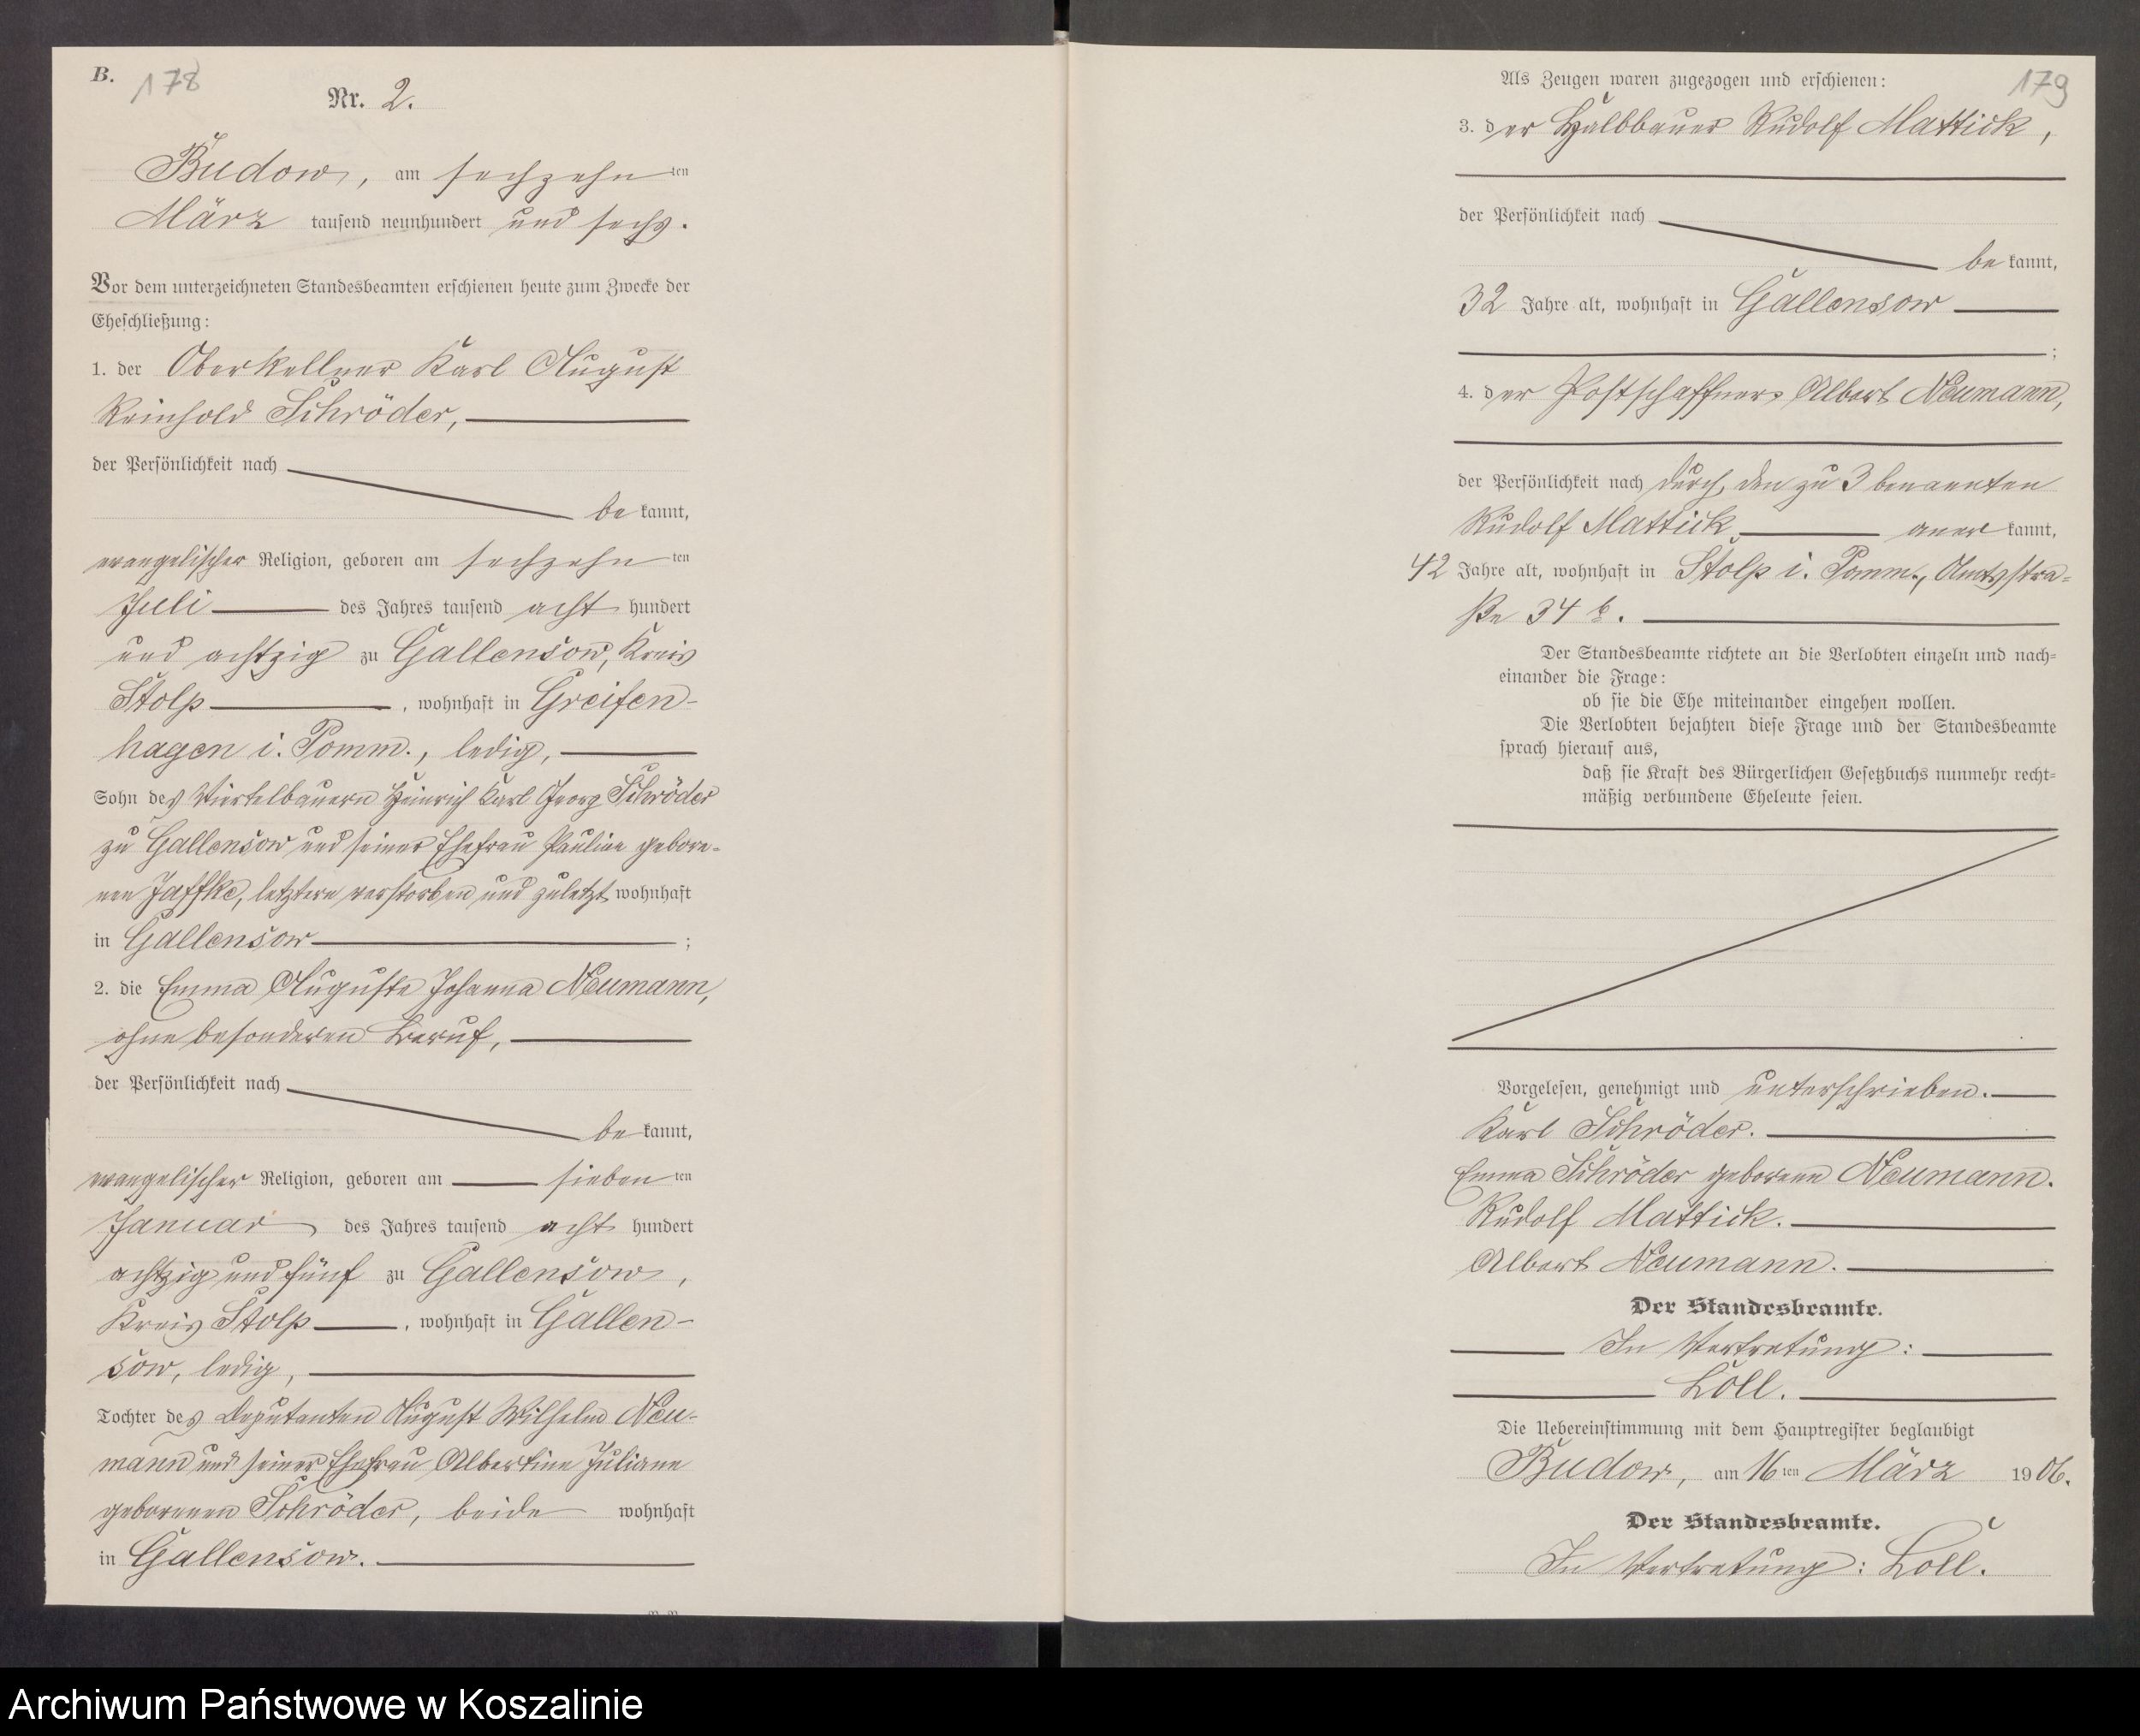 B.
178
Nr. 2.
Budow, am sechzehn ten
März tausend neunhundert und sechs.
Vor dem unterzeichneten Standesbeamten erschienen heute zum Zwecke der
Eheschließung:
1. der Oberkellner Karl August
Reinhold Schröder,
der Persönlichkeit nach
be kannt,
evangelischer Religion, geboren am sechzehn ten
Juli des Jahres tausend acht hundert
und achtzig zu Gallensow, Kreis
Stolp, wohnhaft in Greifen-
hagen i. Pomm., ledig,
Sohn des Viertelbauern Heinrich Karl Georg Schröder
zu Gallensow und seiner Ehefrau Pauline gebore-
nen Jaffke, letztere verstorben und zuletzt wohnhaft
in Gallensow ;
2. die Emma Auguste Johanna Neumann,
ohne besonderen Beruf,
der Persönlichkeit nach
be kannt,
evangelischer Religion, geboren am sieben ten
Januar des Jahres tausend acht hundert
achtzig und fünf zu Gallensow,
Kreis Stolp, wohnhaft in Gallen-
sow, ledig,
Tochter des Deputanten August Wilhelm Neu-
mann und seiner Ehefrau Albertine Juliane
geborenen Schröder, beide wohnhaft
in Gallensow.
179
Als Zeugen waren zugezogen und erschienen:
3. der Halbbauer Rudolf Mattick,
der Persönlichkeit nach
be kannt,
32 Jahre alt, wohnhaft in Gallensow
;
4. der Postschaffner Albert Neumann,
der Persönlichkeit nach durch den zu 3 benannten
Rudolf Mattick aner kannt,
42 Jahre alt, wohnhaft in Stolp i. Pomm., Amtsstra-
ße 34 b.
Der Standesbeamte richtete an die Verlobten einzeln und nach-
einander die Frage:
ob sie die Ehe miteinander eingehen wollen.
Die Verlobten bejahten diese Frage und der Standesbeamte
sprach hierauf aus,
daß sie kraft des Bürgerlichen Gesetzbuchs nunmehr recht-
mäßig verbundene Eheleute seien.
Vorgelesen, genehmigt und unterschrieben.
Karl Schröder.
Emma Schröder geborene Neumann.
Rudolf Mattick.
Albert Neumann.
Der Standesbeamte.
In Vertretung:
Loll.
Die Uebereinstimmung mit dem Hauptregister beglaubigt
Budow, am 16 ten März 1906.
Der Standesbeamte.
In Vertretung: Loll.
Archiwum Państwowe w Koszalinie